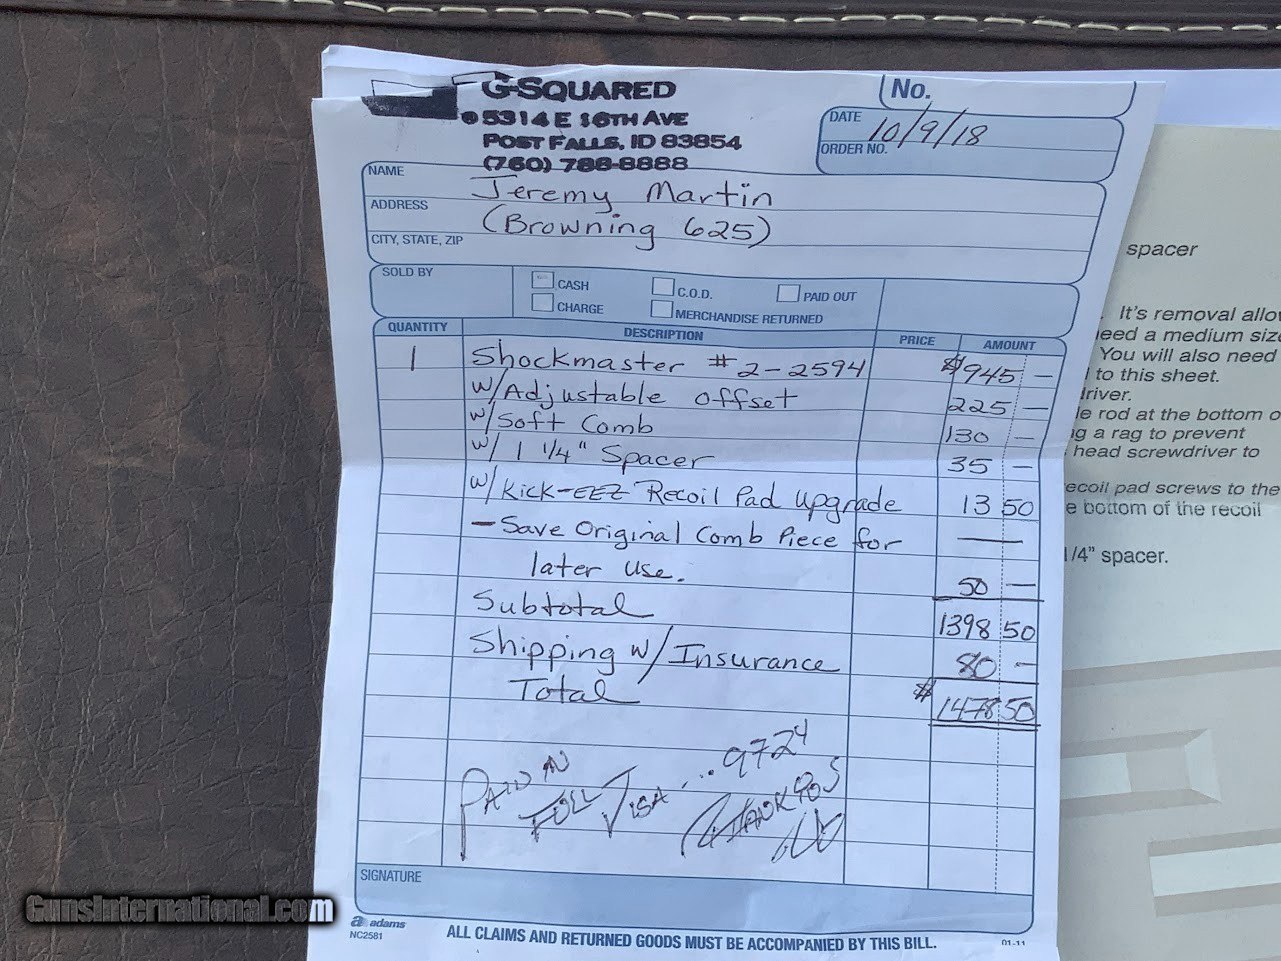 G-SQUARED
5314 E 16TH AVE
POST FALLS, ID 83854
(760) 788-8888
No.
DATE 10/9/18
ORDER NO.
NAME Jeremy Martin
ADDRESS (Browning 625)
CITY, STATE, ZIP
SOLD BY
CASH
C.O.D.
PAID OUT
CHARGE
MERCHANDISE RETURNED
QUANTITY DESCRIPTION PRICE AMOUNT
1 Shockmaster #2-2594 $945 —
w/Adjustable offset 225 —
w/Soft Comb 130 —
w/ 1 1/4" Spacer 35 —
w/Kick-EEZ Recoil Pad Upgrade 13 50
— Save Original Comb Piece for —
later use. 50 —
Subtotal 1398 50
Shipping w/Insurance 80 —
Total $1478 50
PAID IN
FULL VISA ... 9724
THANK YOU
SIGNATURE
adams
NC2581
ALL CLAIMS AND RETURNED GOODS MUST BE ACCOMPANIED BY THIS BILL.
01-11
spacer
It's removal allow
need a medium size
You will also need
to this sheet.
driver.
le rod at the bottom o
ng a rag to prevent
head screwdriver to
recoil pad screws to the
e bottom of the recoil
1/4" spacer.
GunsInternational.com